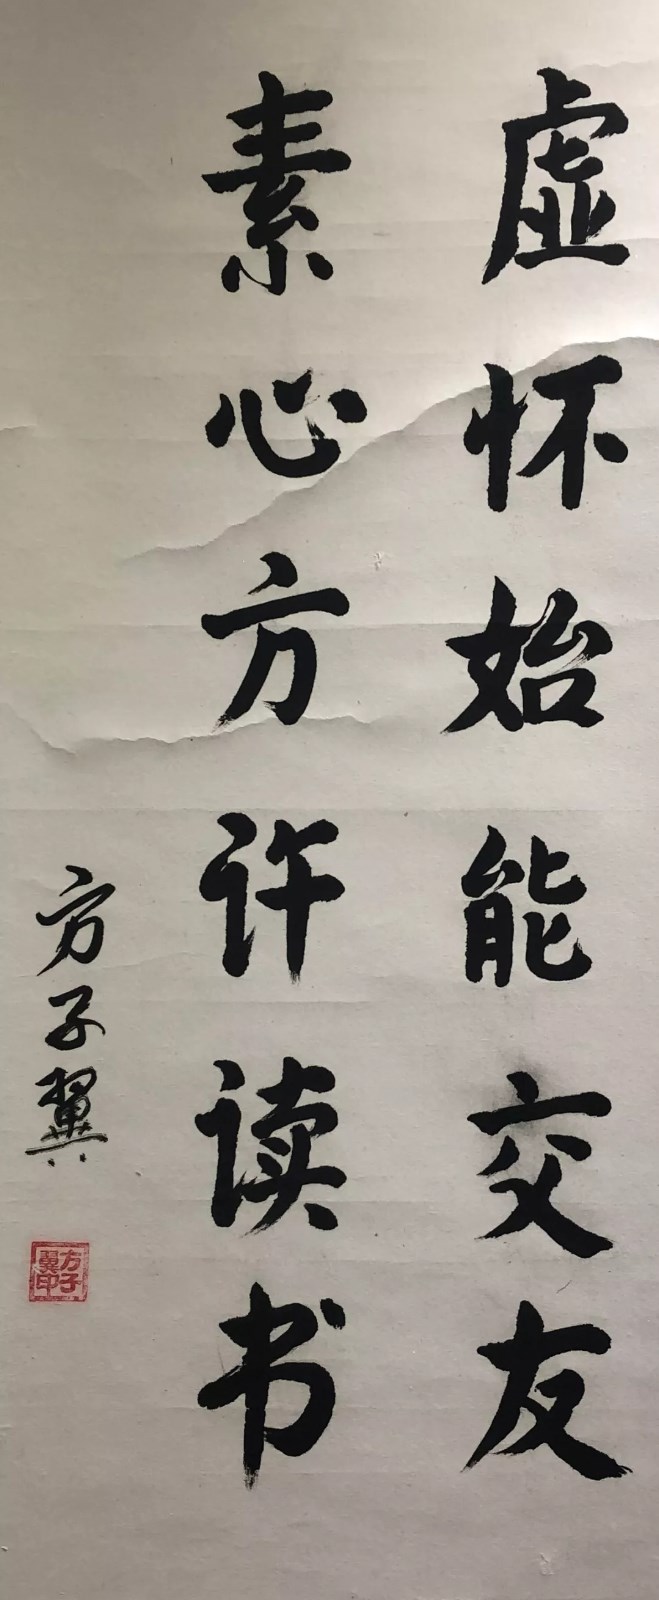 虚怀始能交友
素心方许读书
方子翼
方子翼印